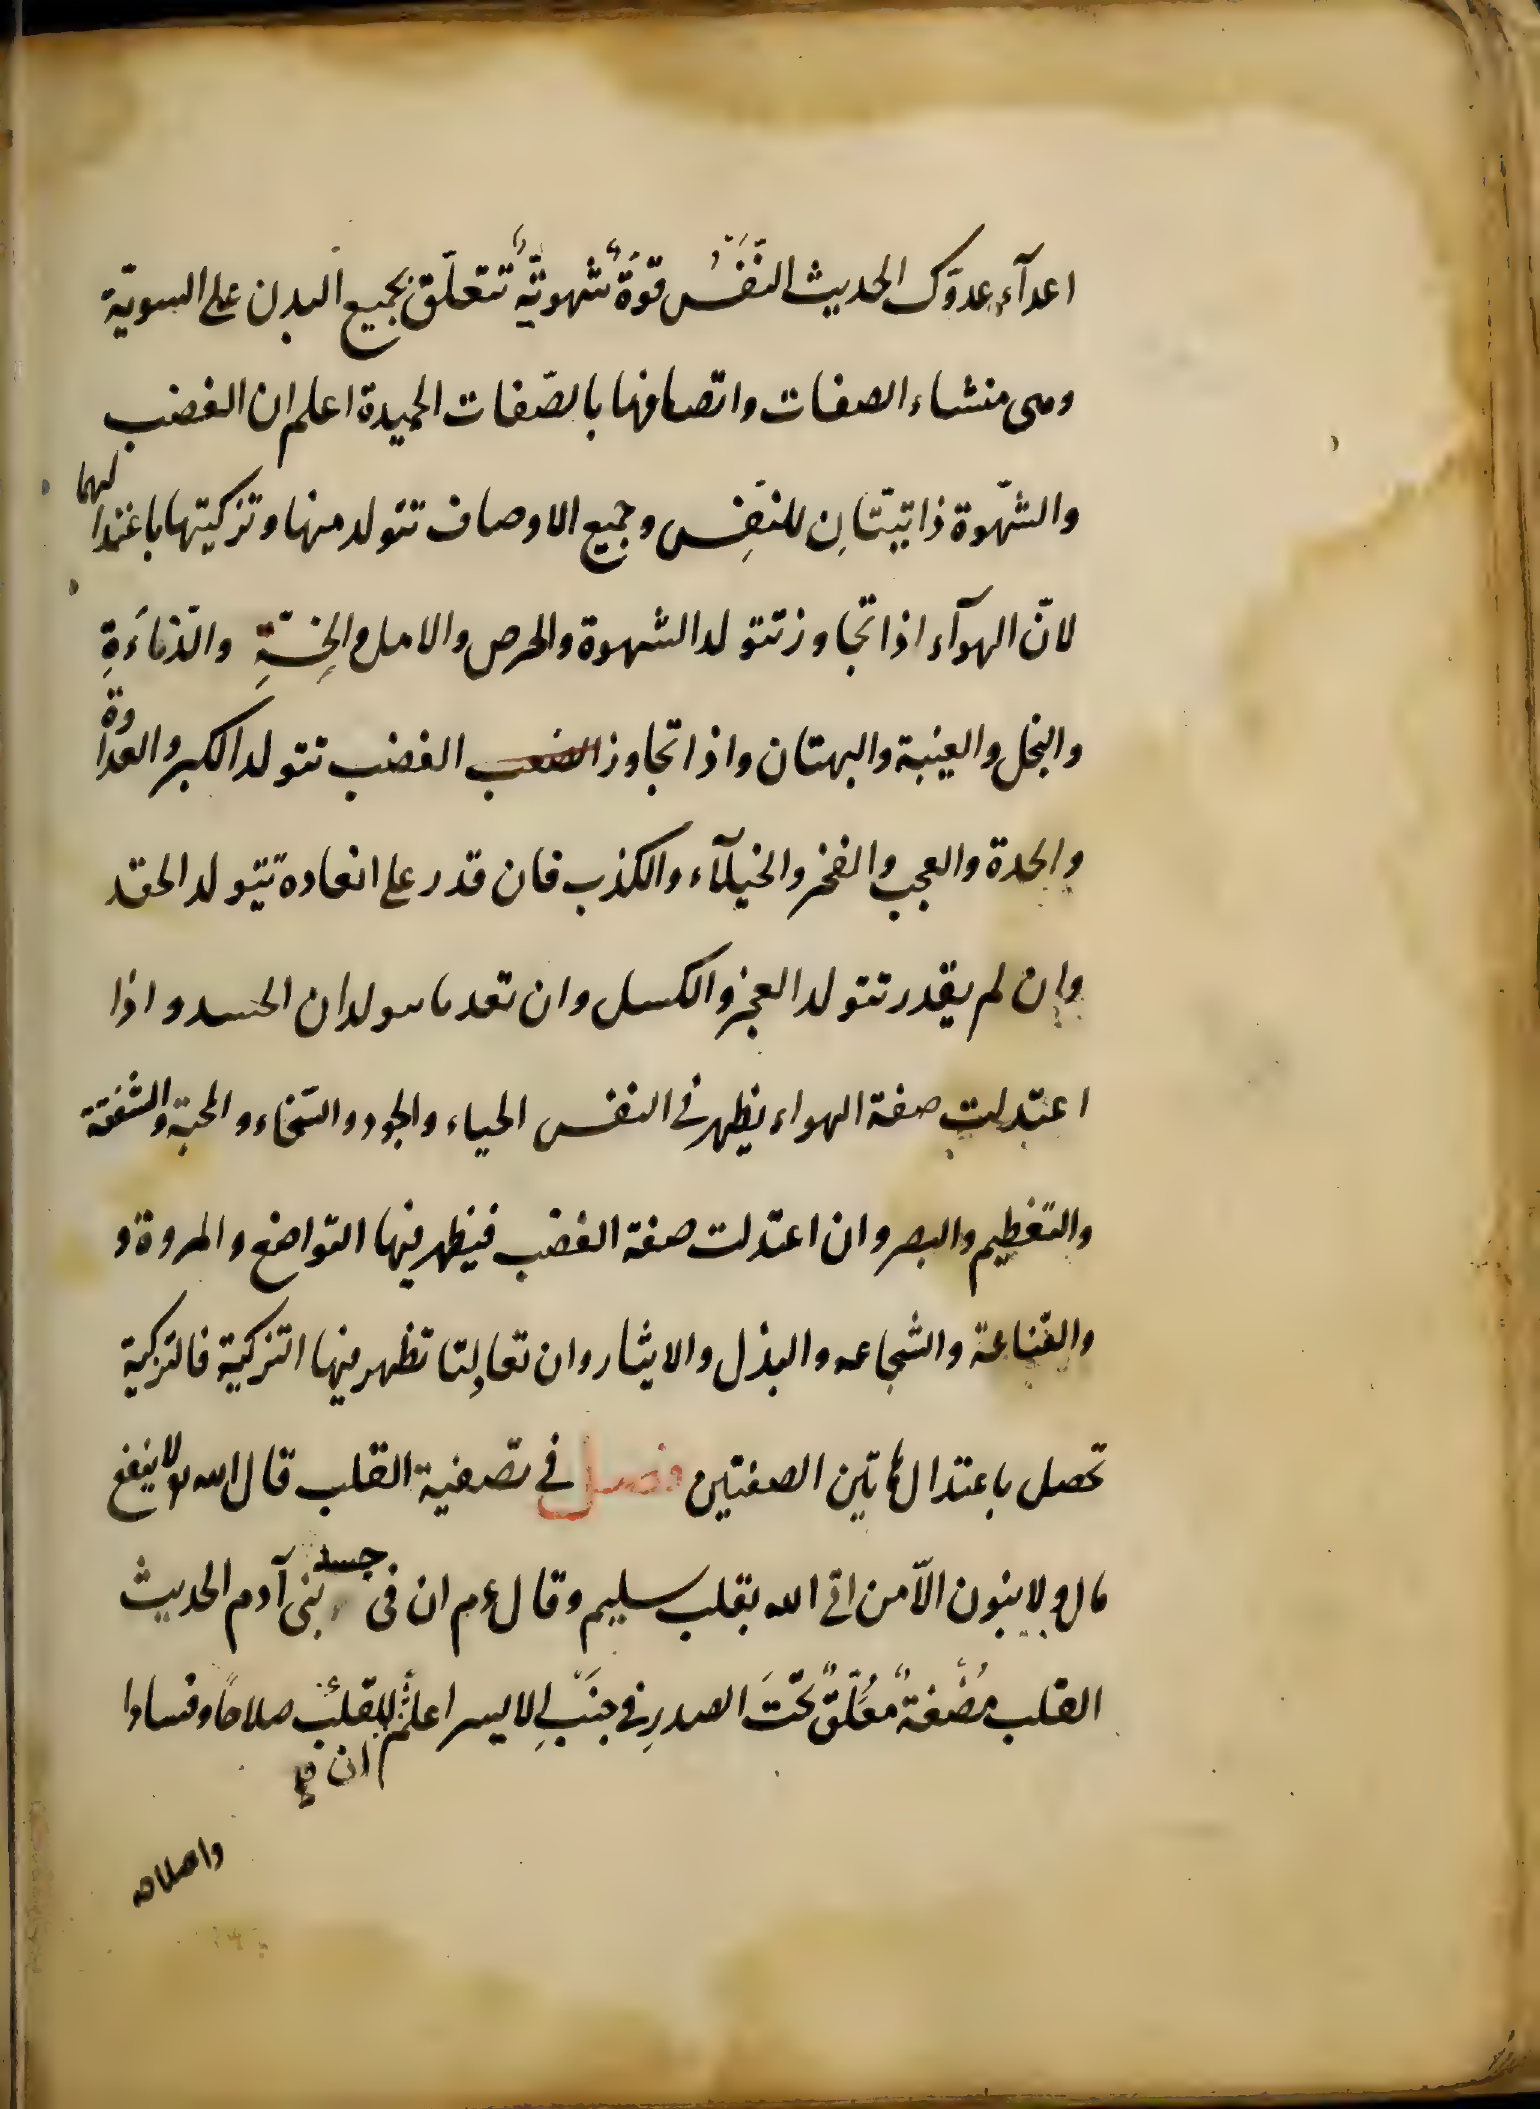 اعدآء عدوّك الحديث النَّفْسُ قوّةٌ شهويّةٌ تتعلّق بجميع البدن على السويّة
وهى منشاء الصفات واتصافها بالصّفات الحميدة اعلم ان الغضب
والشّهوة ذاتيّتانِ للنفِس وجميع الاوصاف تتولد منها وتزكيتها باعتدالهما
لانّ الهوآء اذا تجاوز تتولد الشهوة والحرص والامل والخِسّةِ والدّناءَةِ
والبخل والغيبة والبهتان واذا تجاوز الغضب تتولد الكبر والعداوة
والحدة والعجب والفخر والخيلآء والكذب فان قدر على انفاده تتولد الحقد
وان لم يقدر تتولد العجز والكسل وان تولدان الحسد واذا
اعتدلت صفة الهواء يظهر فى النفس الحياء والجود والسّخاء والمحبة والشفقة
والتعظيم والبصر وان اعتدلت صفة الغضب فيظهر فيها التواضع والمروة و
والقناعة والشجاعه والبذل والايثار وان تعادلتا تظهر فيها التزكية فالتزكية
تحصل باعتدال هاتين الصفتين فصل فى تصفية القلب قال الله يوم لا ينفع
مال ولا بنون الاّ من اتى الله بقلب سليم وقال ءم ان فى جسد بنى آدم الحديث
القلب مُضْغةٌ معُلّقٌ تحْتَ الصدرِ فى جنَبِ الايسر اعلم ان فى للقلب صلاحًا وفسادا
واصلاحه